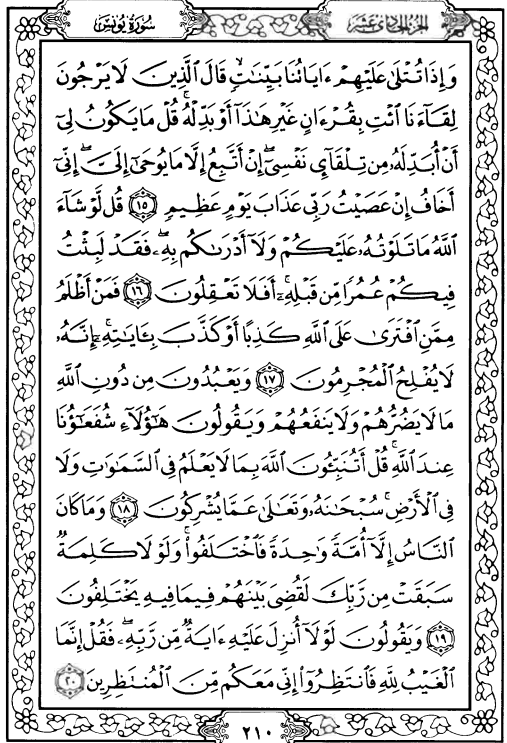 سُورَةُ يُونُسَ
الجُزْءُ الحَادِي عَشَرَ
وَإِذَا تُتْلَىٰ عَلَيْهِمْ ءَايَاتُنَا بَيِّنَٰتٍ ۙ قَالَ ٱلَّذِينَ لَا يَرْجُونَ
لِقَآءَنَا ٱئْتِ بِقُرْءَانٍ غَيْرِ هَٰذَآ أَوْ بَدِّلْهُ ۚ قُلْ مَا يَكُونُ لِىٓ
أَنْ أُبَدِّلَهُۥ مِن تِلْقَآئِ نَفْسِىٓ ۖ إِنْ أَتَّبِعُ إِلَّا مَا يُوحَىٰٓ إِلَىَّ ۖ إِنِّىٓ
أَخَافُ إِنْ عَصَيْتُ رَبِّى عَذَابَ يَوْمٍ عَظِيمٍ ١٥ قُل لَّوْ شَآءَ
ٱللَّهُ مَا تَلَوْتُهُۥ عَلَيْكُمْ وَلَآ أَدْرَىٰكُم بِهِۦ ۖ فَقَدْ لَبِثْتُ
فِيكُمْ عُمُرًا مِّن قَبْلِهِۦٓ ۚ أَفَلَا تَعْقِلُونَ ١٦ فَمَنْ أَظْلَمُ
مِمَّنِ ٱفْتَرَىٰ عَلَى ٱللَّهِ كَذِبًا أَوْ كَذَّبَ بِـَٔايَٰتِهِۦٓ ۚ إِنَّهُۥ
لَا يُفْلِحُ ٱلْمُجْرِمُونَ ١٧ وَيَعْبُدُونَ مِن دُونِ ٱللَّهِ
مَا لَا يَضُرُّهُمْ وَلَا يَنفَعُهُمْ وَيَقُولُونَ هَٰٓؤُلَآءِ شُفَعَٰٓؤُنَا
عِندَ ٱللَّهِ ۚ قُلْ أَتُنَبِّـُٔونَ ٱللَّهَ بِمَا لَا يَعْلَمُ فِى ٱلسَّمَٰوَٰتِ وَلَا
فِى ٱلْأَرْضِ ۚ سُبْحَٰنَهُۥ وَتَعَٰلَىٰ عَمَّا يُشْرِكُونَ ١٨ وَمَا كَانَ
ٱلنَّاسُ إِلَّآ أُمَّةً وَٰحِدَةً فَٱخْتَلَفُوا۟ ۚ وَلَوْلَا كَلِمَةٌ
سَبَقَتْ مِن رَّبِّكَ لَقُضِىَ بَيْنَهُمْ فِيمَا فِيهِ يَخْتَلِفُونَ
١٩ وَيَقُولُونَ لَوْلَآ أُنزِلَ عَلَيْهِ ءَايَةٌ مِّن رَّبِّهِۦ ۖ فَقُلْ إِنَّمَا
ٱلْغَيْبُ لِلَّهِ فَٱنتَظِرُوٓا۟ إِنِّى مَعَكُم مِّنَ ٱلْمُنتَظِرِينَ ٢٠
٢١٠